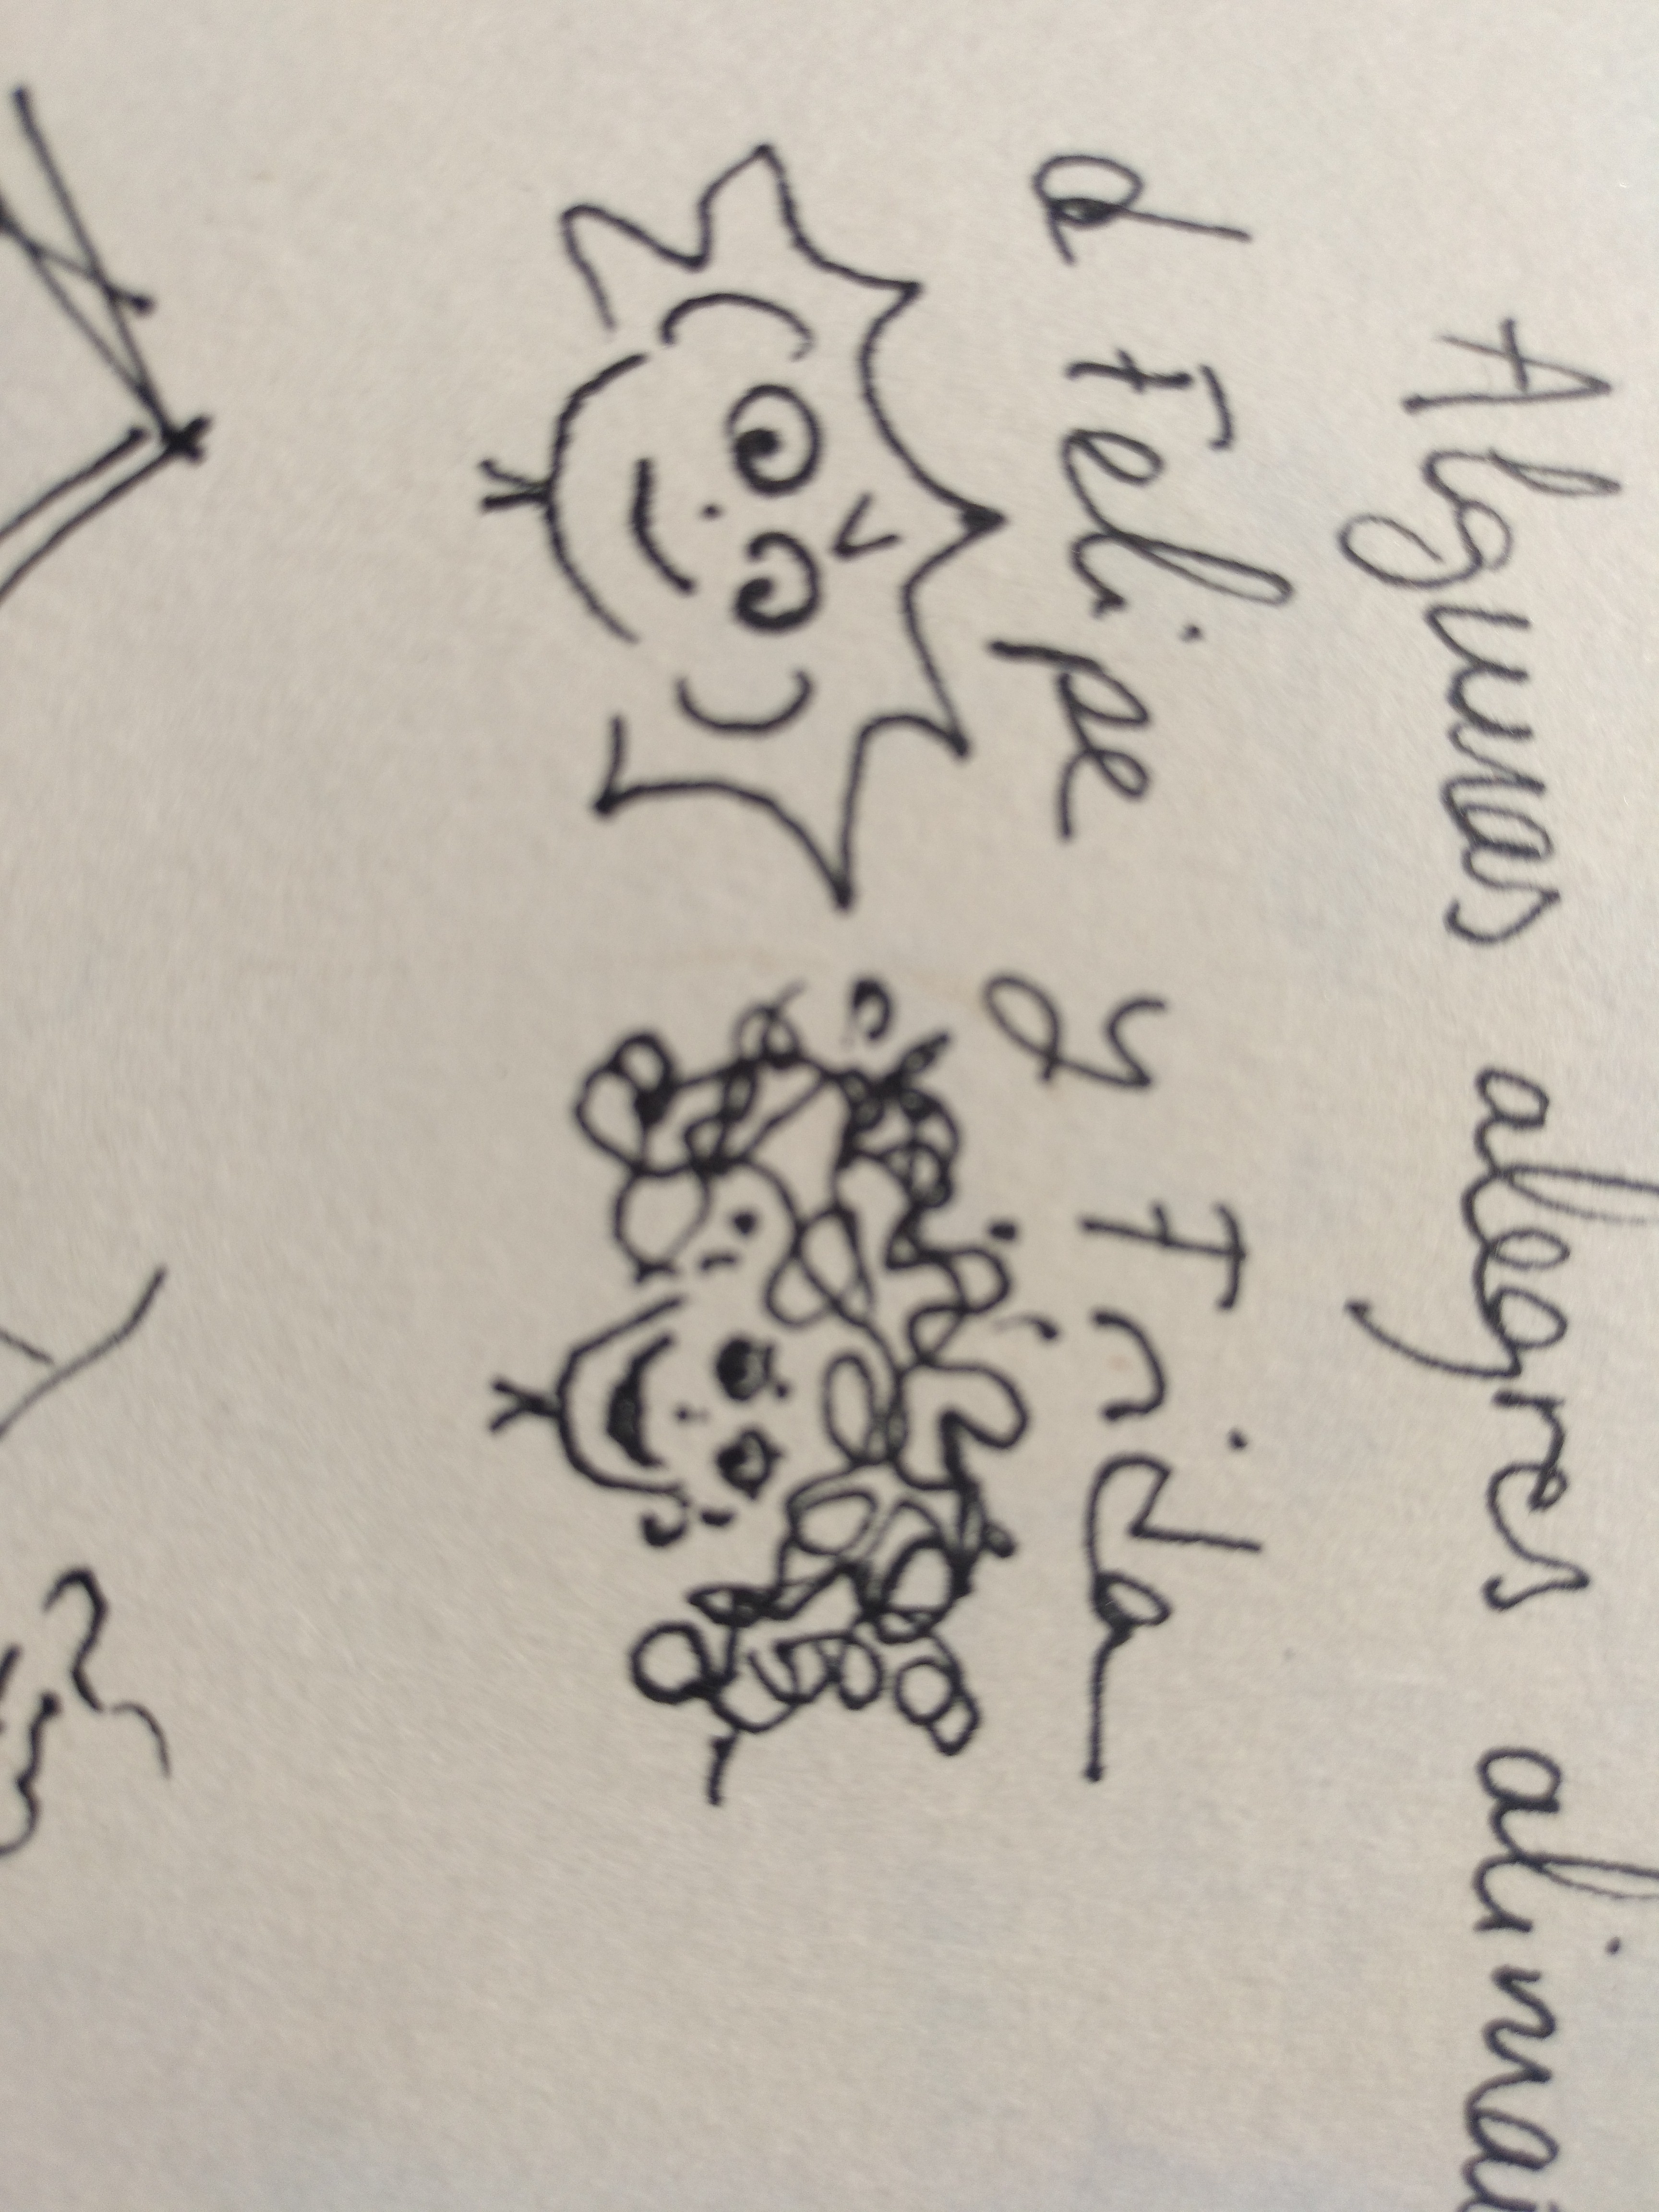 Algunas alegres alima
d Felipe y Frida